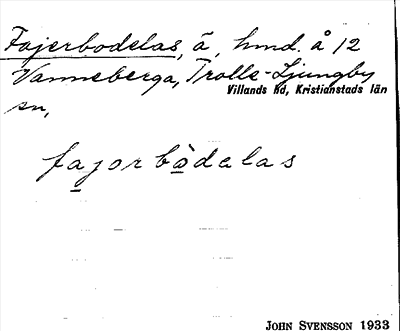 Fajerbodelas, å, hmd. å 12
Vanneberga, Trolle-Ljungby
Villands hd, Kristianstads län
sn,
fajorbòdalas
JOHN SVENSSON 1933